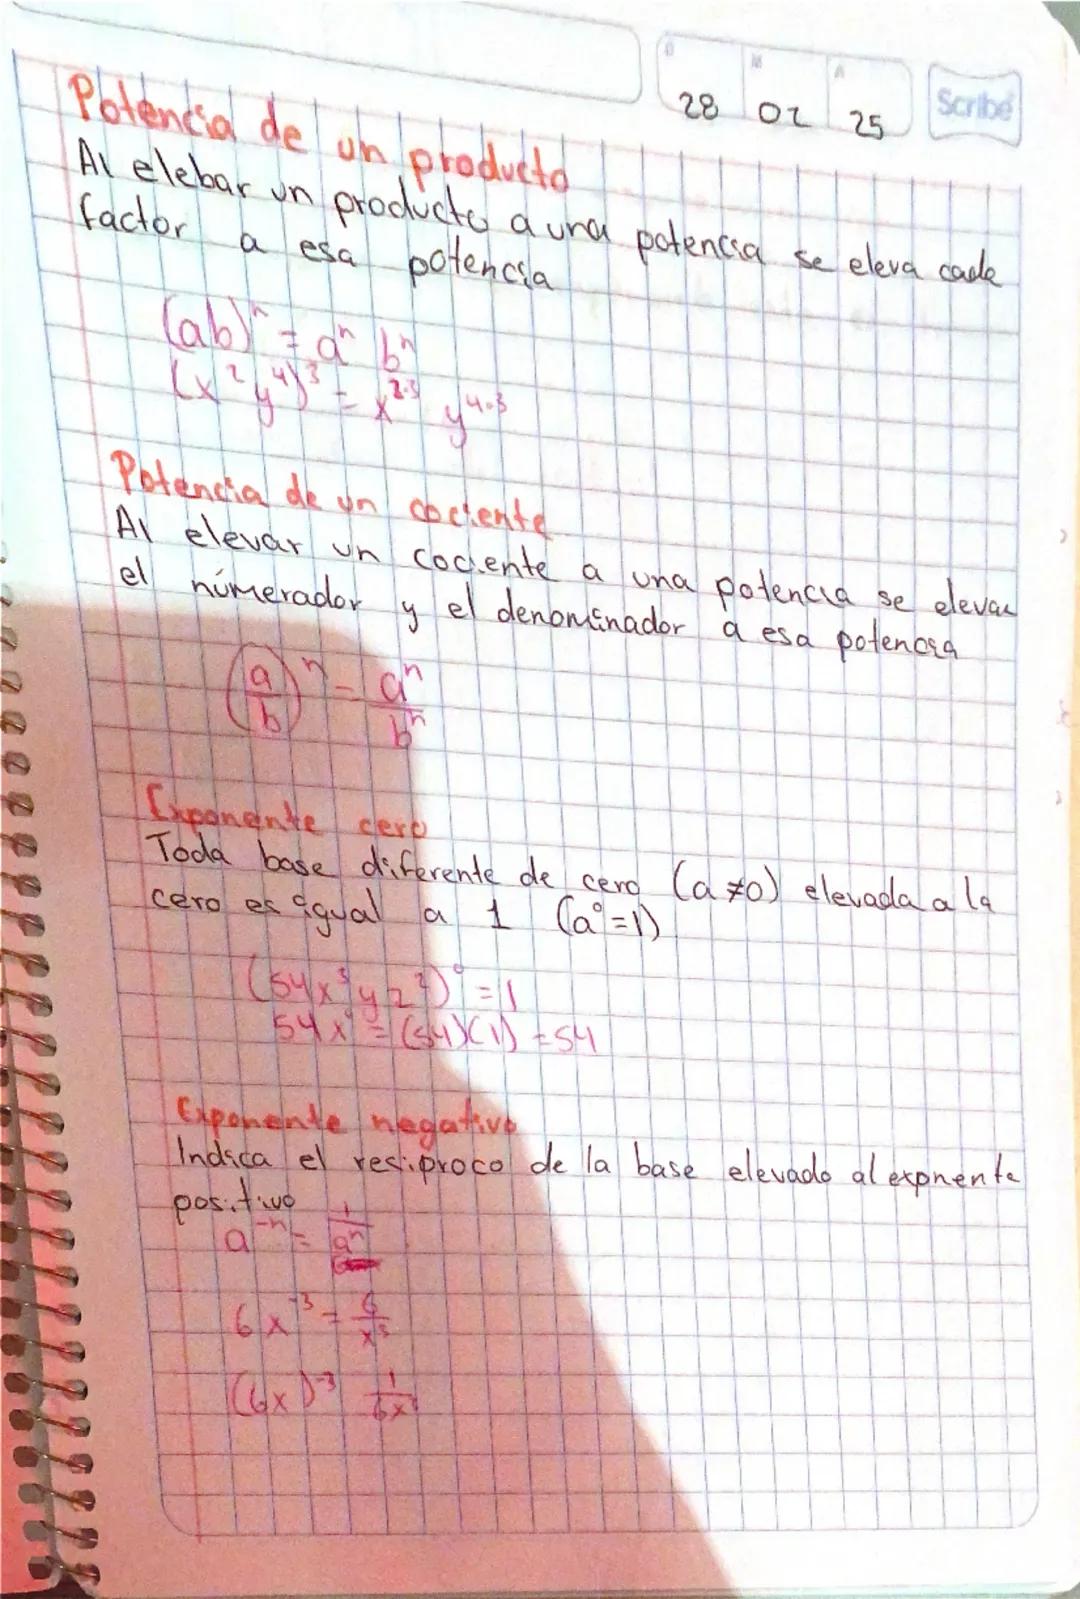 D M A
28 02 25
Scribe
Potencia de un producto
Al elebar un producto a una potencia se eleva cada
factor a esa potencia
(ab)ⁿ = aⁿ bⁿ
(x²y⁴)³ = x²·³ y⁴·³
Potencia de un cociente
Al elevar un cociente a una potencia se elevan
el númerador y el denominador a esa potencia
(a/b)ⁿ = aⁿ/bⁿ
Exponente cero
Toda base diferente de cero (a≠0) elevada a la
cero es igual a 1 (a⁰=1)
(54x³yz²)⁰ = 1
54x⁰ = (54)(1) = 54
Exponente negativo
Indica el resiproco de la base elevado al expnente
positivo
a⁻ⁿ = 1/aⁿ
6x⁻³ = 6/x³
(6x)⁻³ 1/6x³